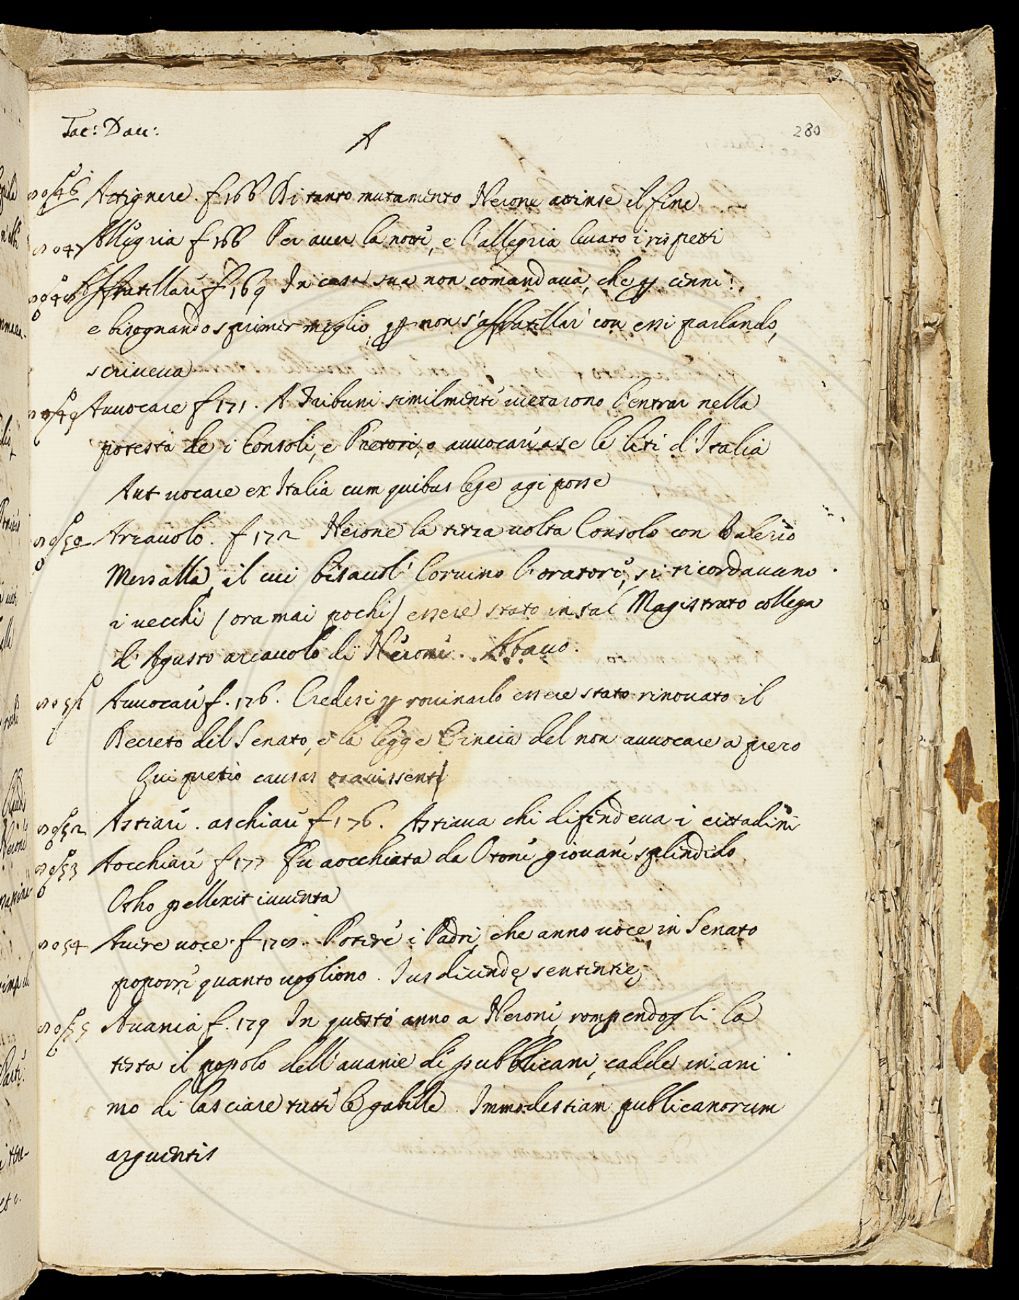 Tac: Dau:
A
280
2046 Attignere. f 166 Di tanto mutamento Nerone attinse il fine
2047 Allegria f 166 Per auer la notte, e l'allegria leuato i rispetti
2048 Affratellare f 169 In casa sua non comandaua, che p cenni:
e bisognando sprimer meglio, p non s'affratellar con essi parlando,
scriueua
2049 Auuocare f 171. A Tribuni similmente uietarono l'entrar nella
potestà de i Consoli, e Pretori, o auuocare a se le liti d'Italia
Aut uocare ex Italia cum quibus lege agi posse
2050 Arcauolo. f 172 Nerone la terza uolta Consolo con Valerio
Messalla, il cui bisauol' Coruino l'oratore, si ricordauano
i uecchi (oramai pochi) essere stato in tal Magistrato collega
d'Agusto arcauolo di Nerone. Abauo.
2051 Auuocare f. 176. Credesi p rouinarlo essere stato rinouato il
Decreto del Senato, e la legge Cincia del non auuocare a prezo
Qui pretio causas orauissent
2052 Astiare. aschiare f 176. Astiaua chi difendeua i cittadini
2053 Aocchiare f 177 Fu aocchiata da Otone, giouane splindido
Otho pellexit iuuenta
2054 Auere uoce. f 178. Potere i Padri, che anno uoce in Senato
poporre quanto uogliono. Ius dicendę sententię
2055 Auania f. 179 In questo anno a Nerone, rompendogli la
testa il popolo dell'auanie de pubblicani, cadde in ani
mo di lasciare tutte le gabelle. Immodestiam publicanorum
arguentis